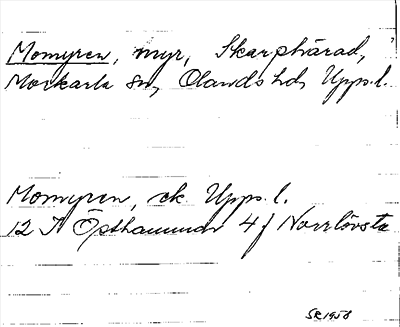 Momyren, myr, Skarphärad,
Morkarla sn, Olands hd, Upps. l.
Momyren, ek. Upps. l.
12 I Östhammar 4 f Norrlövsta
SR 1958